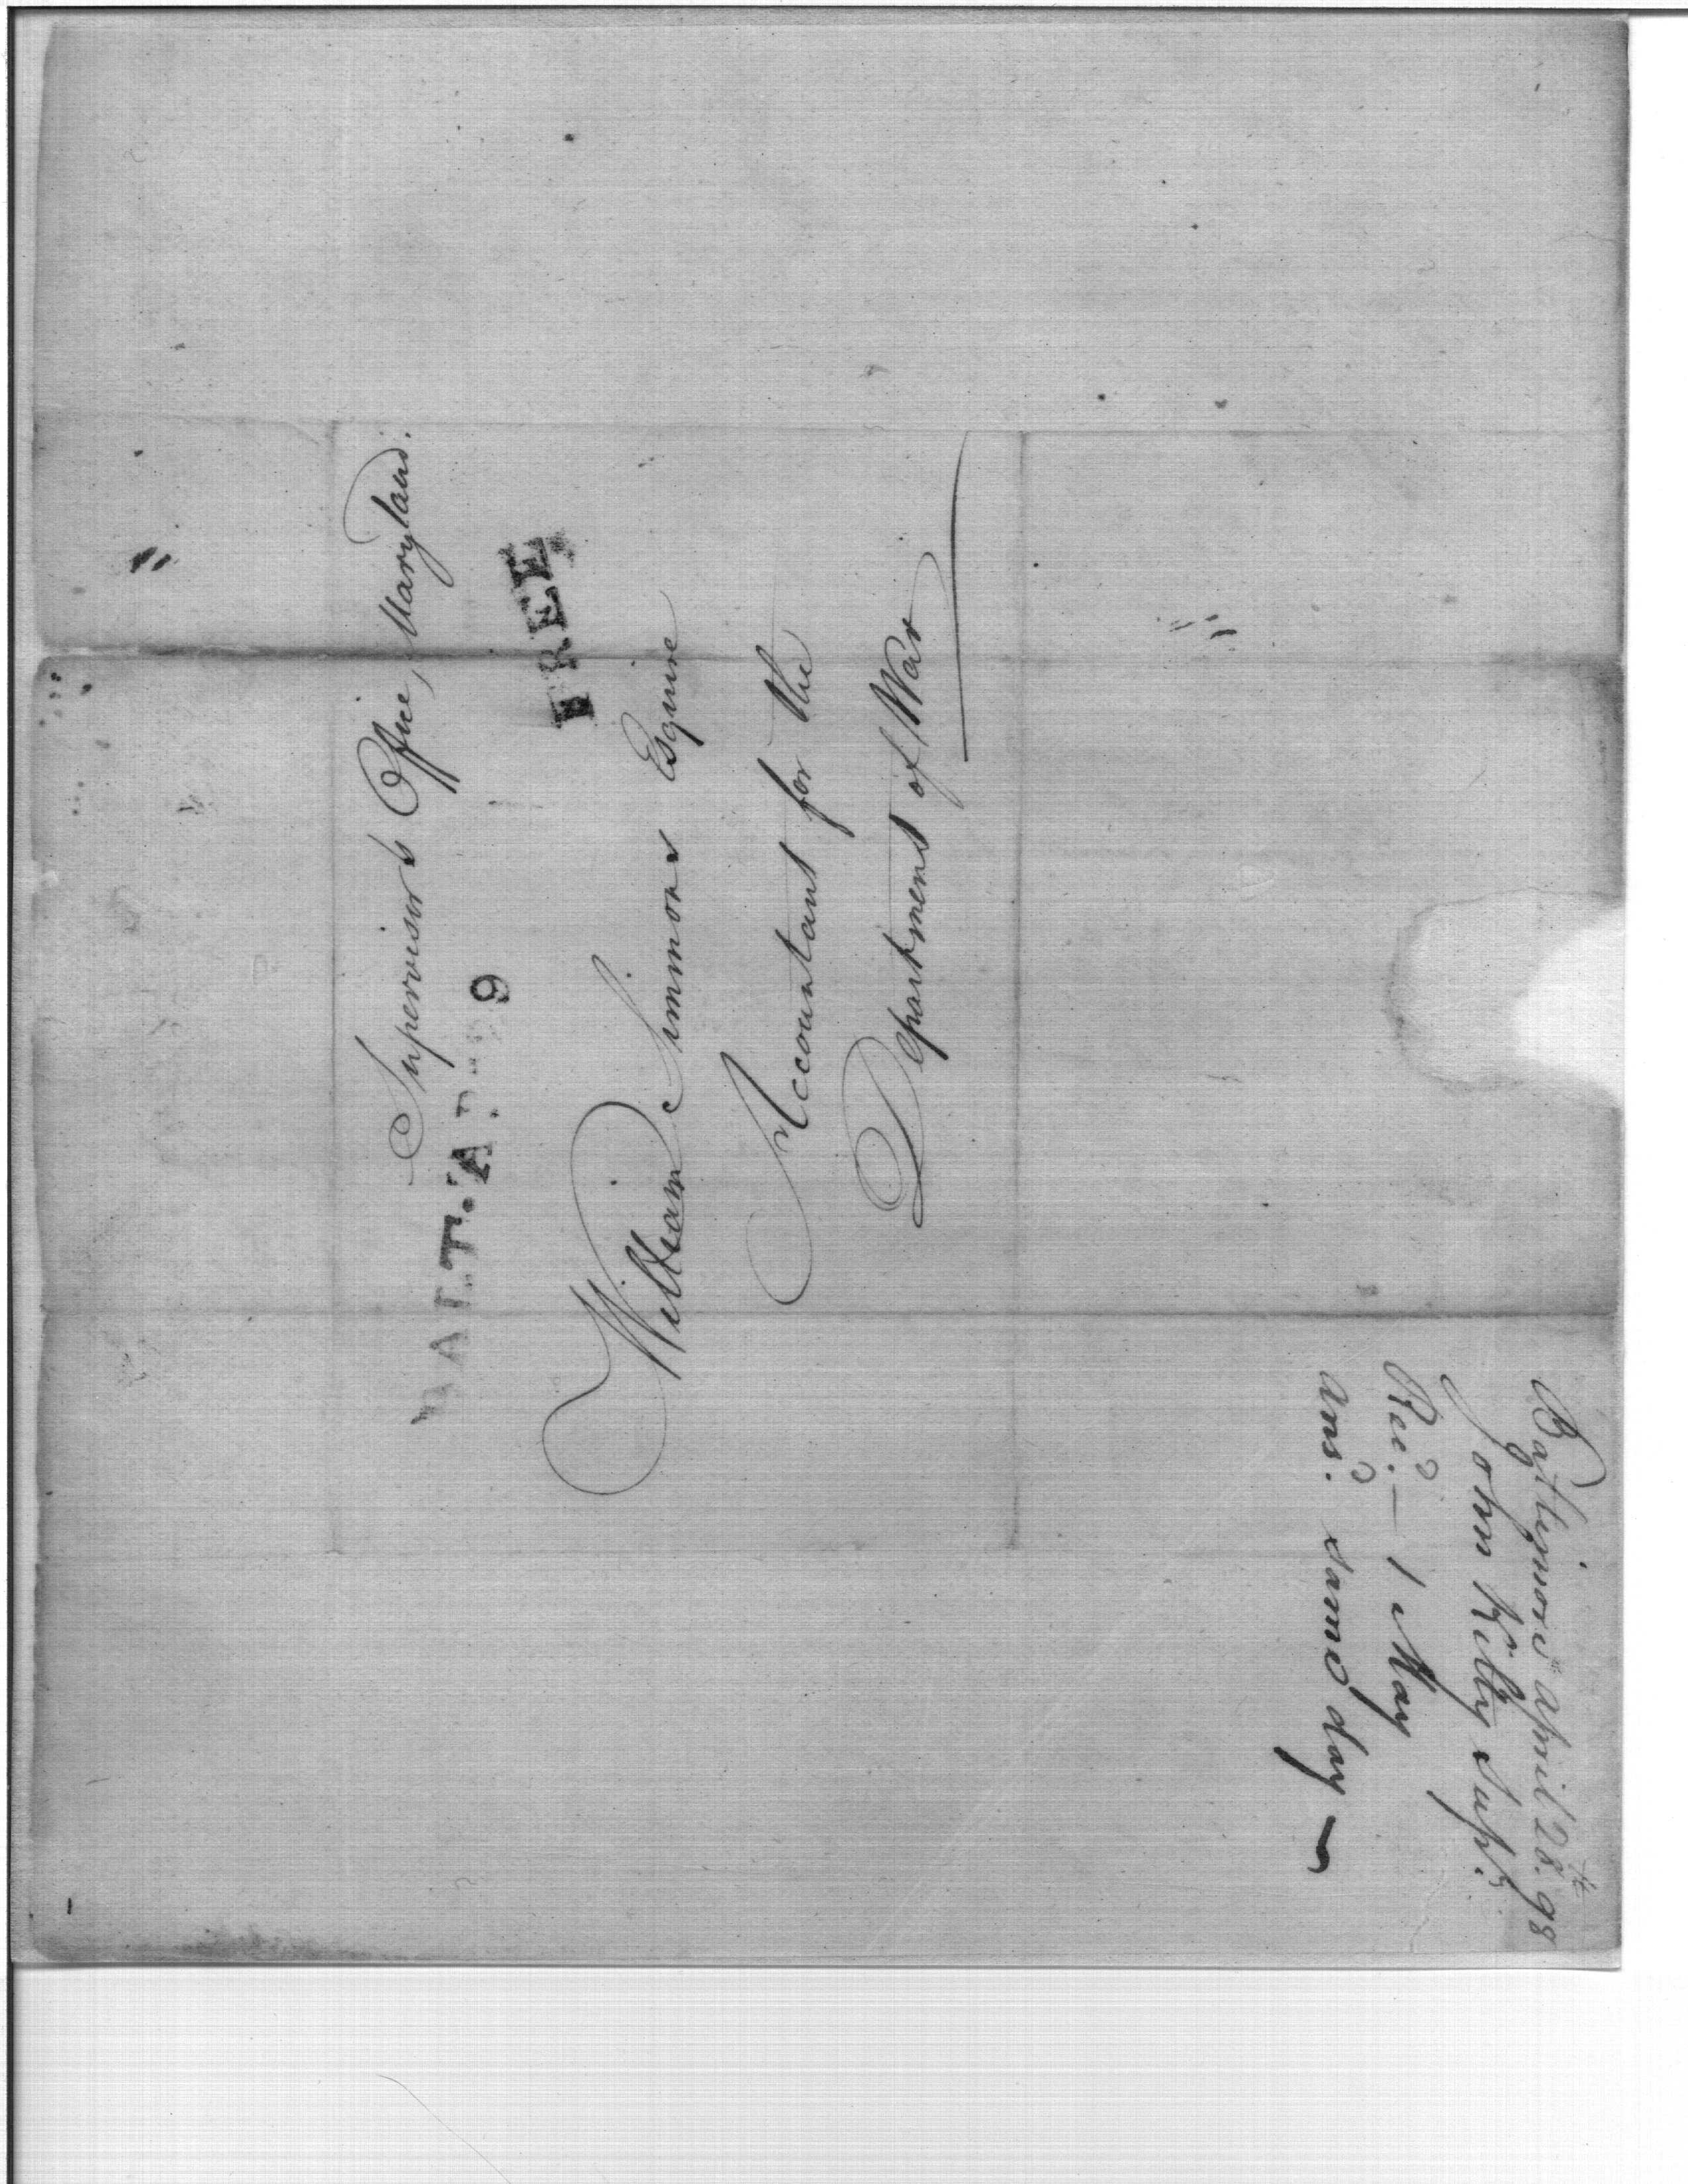 Supervisor's Office, Maryland.
BALT. AP 9
FREE
William Simmons Esquire
Accountant for the
Department of War
Baltimore april 28.th 98
John Kilty Supr.
Rec.d — 1 May
Ans.d same day